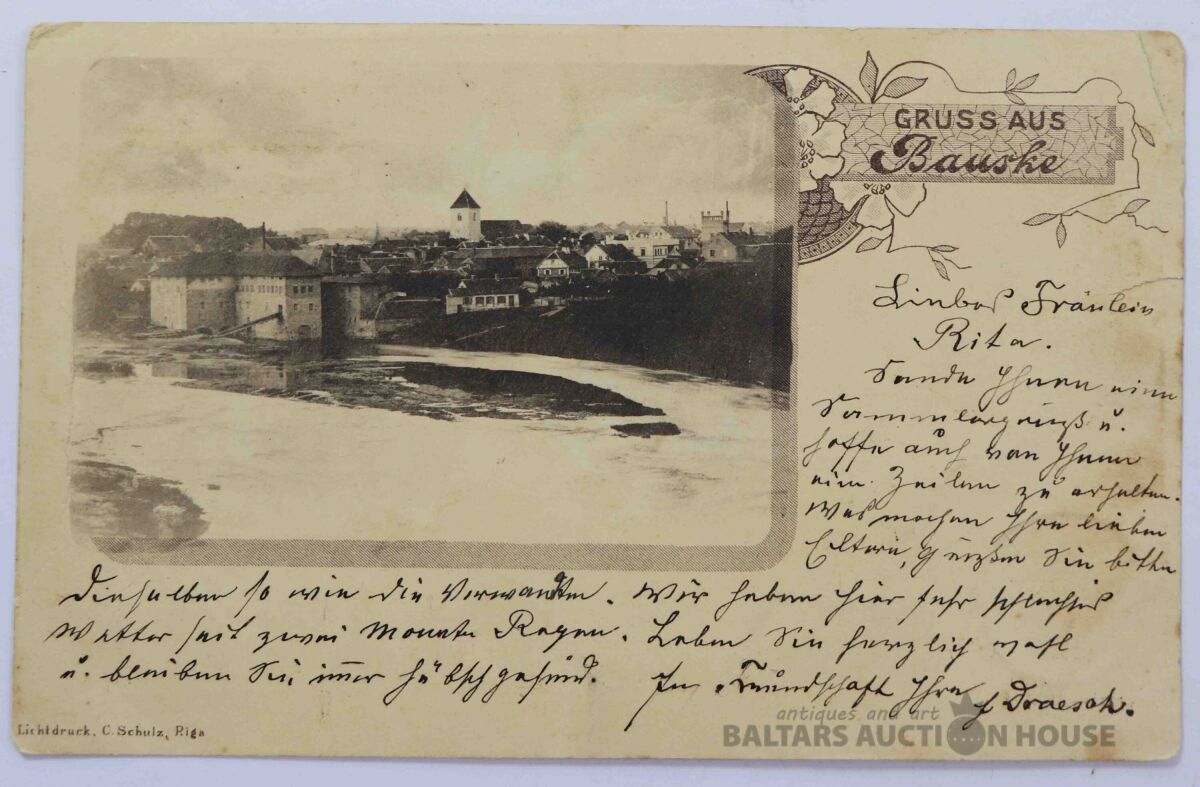 GRUSS AUS
Bauske
Liebes Fräulein
Rita.
Sende Ihnen einen
Sommergruß u.
hoffe auch von Ihnen
eine Zeilen zu erhalten.
Was machen Ihre lieben
Eltern, grüßen Sie bitte
dieselben so wie die Verwandten. Wir haben hier sehr schlechtes
Wetter seit zwei Monate Regen. Leben Sie herzlich wohl
u. bleiben Sie immer hübsch gesund. In Freundschaft Ihre
J Draesch.
Lichtdruck, C. Schulz, Riga
antiques and art
BALTARS AUCTION HOUSE